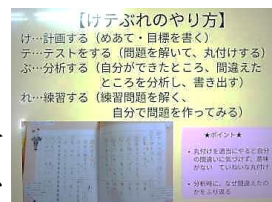 【けテぶれのやり方】
け…計画する（めあて・目標を書く）
テ…テストをする（問題を解いて、丸付けする）
ぶ…分析する（自分ができたところ、間違えた
ところを分析し、書き出す）
れ…練習する（練習問題を解く、
自分で問題を作ってみる）
★ポイント★
・丸付けを適当にやると自分
の間違いに気づけず、意味
がない ていねいな丸付け
・分析時に、なぜ間違えたの
かをふり返る